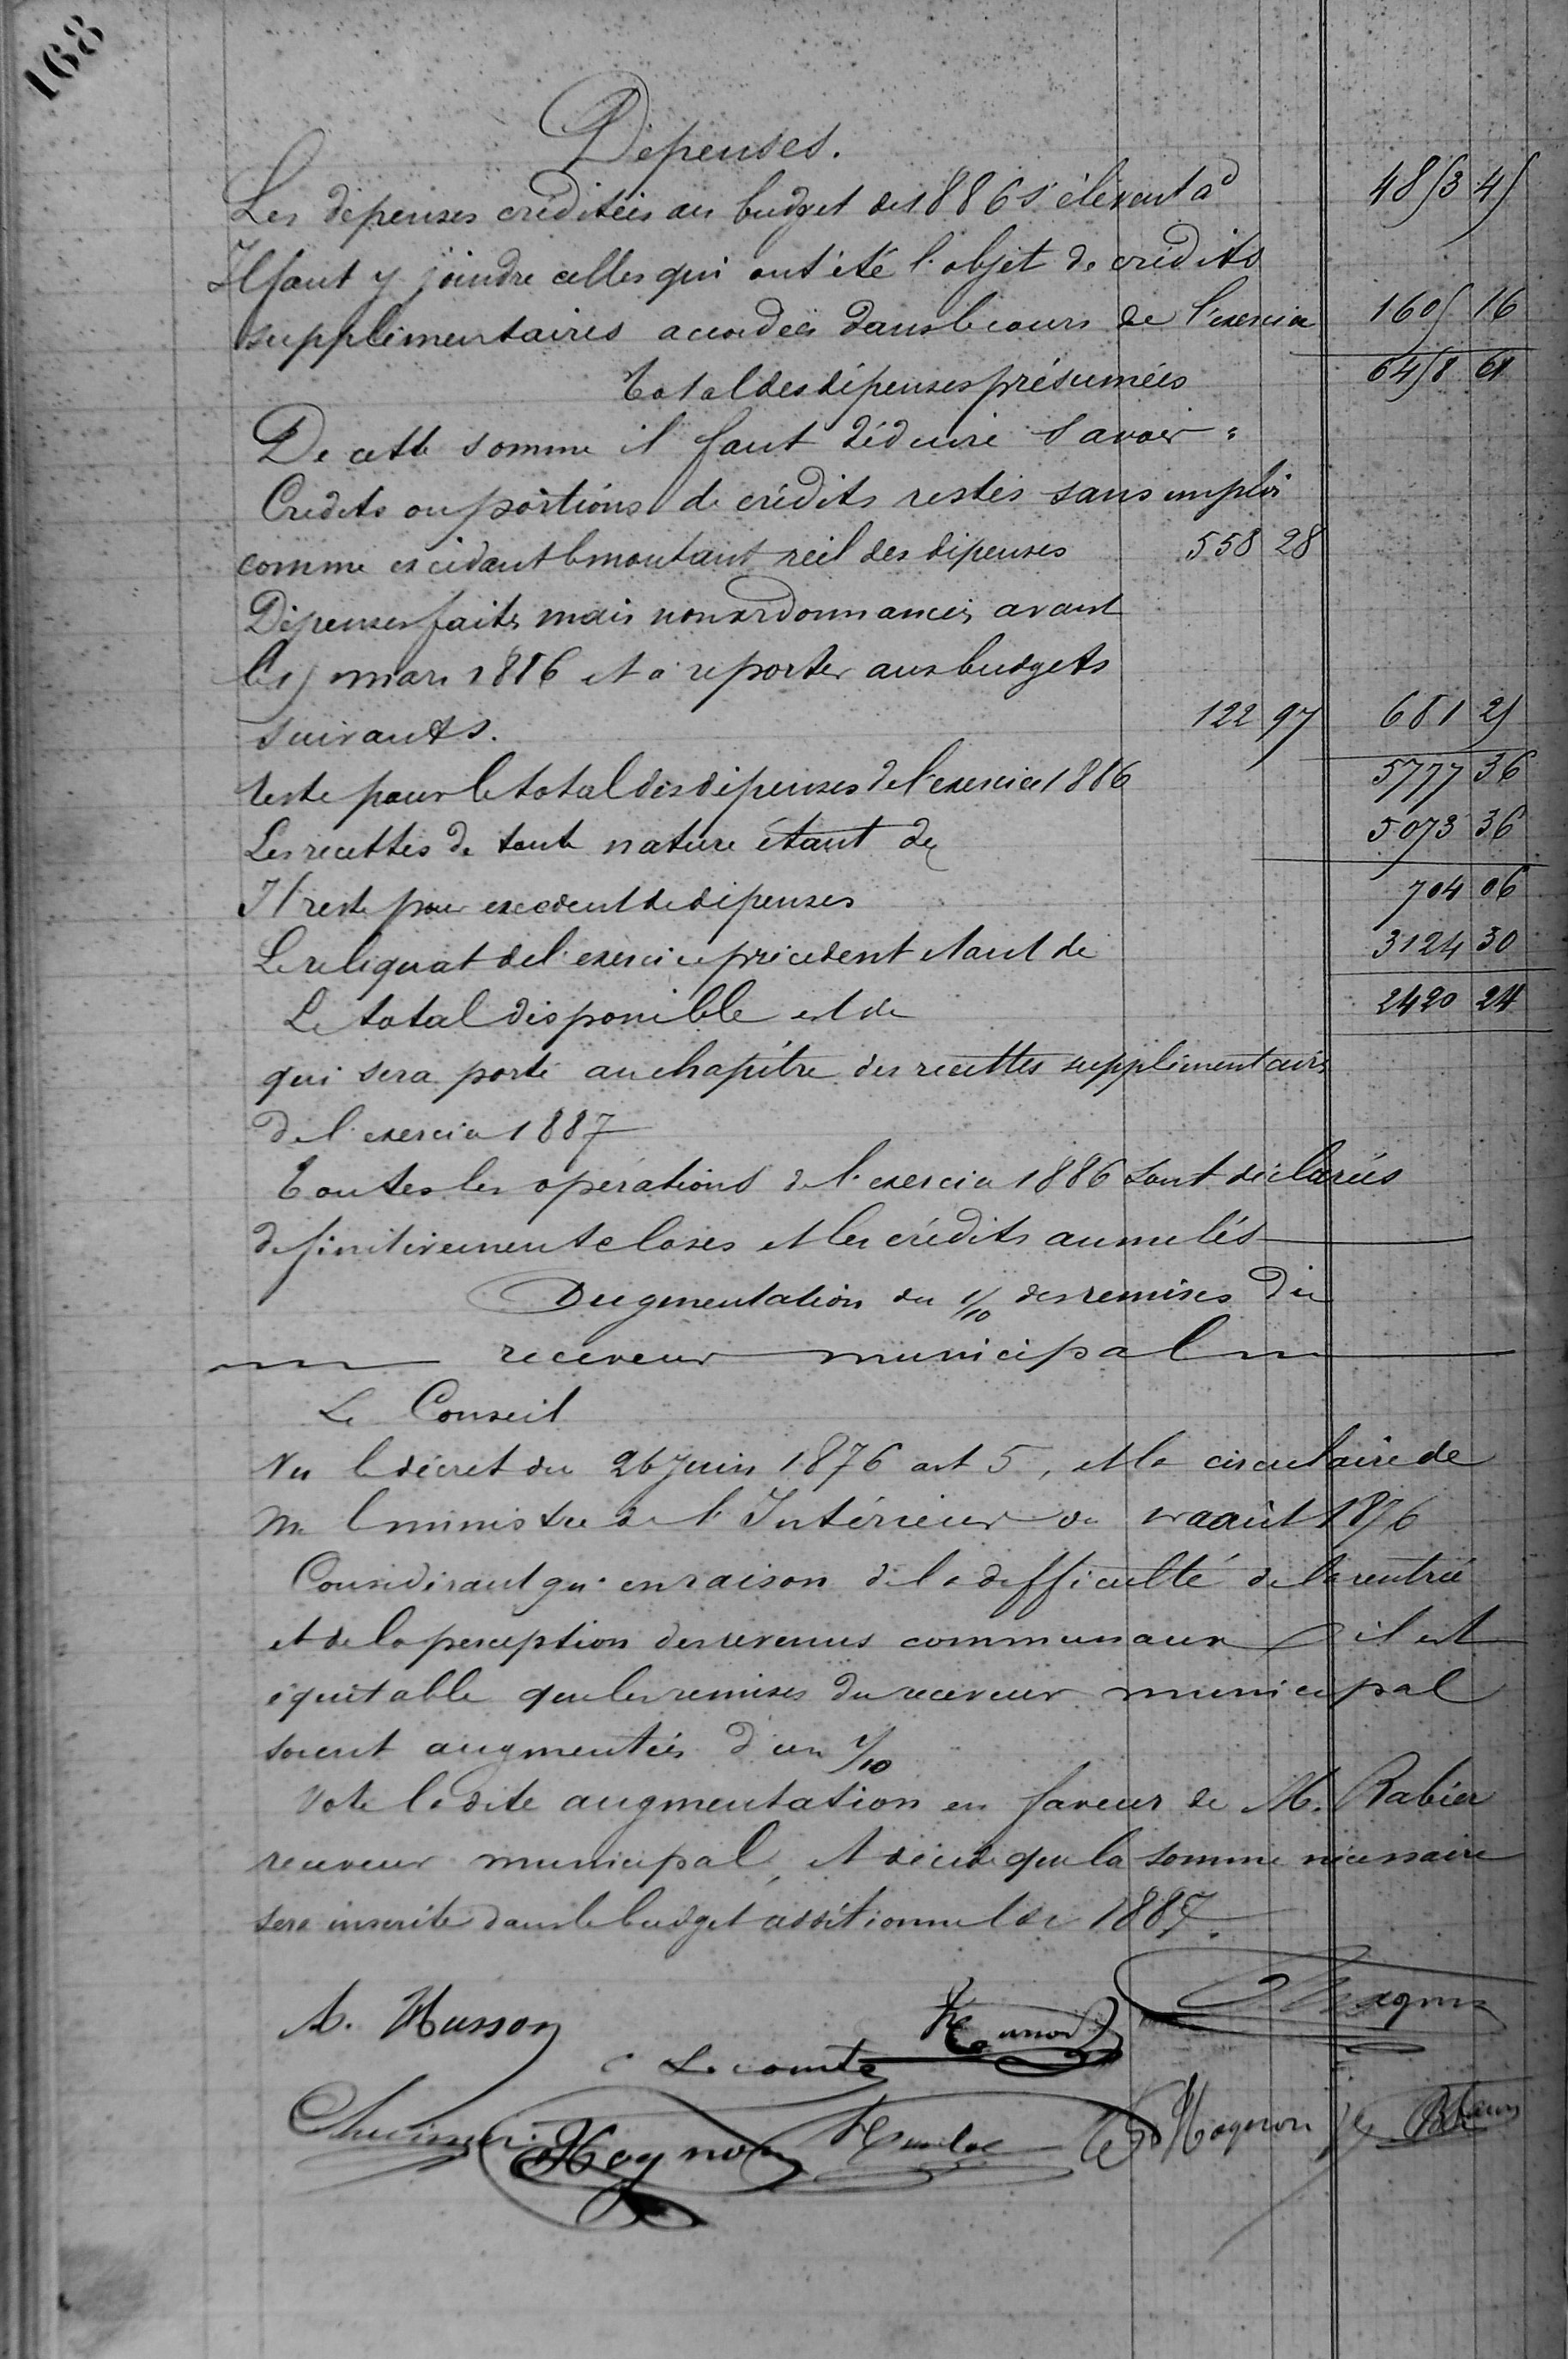 168
Dépenses.
Les dépenses créditées au budget de 1886 s'élèvent à 4853 45
Il faut y joindre celles qui ont été l'objet de crédits
supplémentaires accordées dans le cours de l'exercice 1605 16
Total des dépenses présumées 6458 61
De cette somme il faut déduire Savoir :
Crédits ou portions de crédits restés sans emploi
comme excédant le montant réel des dépenses 558 28
Dépenses faites mais non ordonnancées avant
le 15 mars 1886 et à reporter aux budgets
suivants. 122 97 681 25
Reste pour le total des dépenses de l'exercice 1886 5777 36
Les recettes de toute nature étant de 5073 36
Il reste pour excédent de dépenses 704 06
Le reliquat de l'exercice précédent étant de 3124 30
Le total disponible est de 2420 24
qui sera porté au chapitre des recettes supplémentaires
de l'exercice 1887
Toutes les opérations de l'exercice 1886 sont déclarées
définitivement closes et les crédits annulés
Augmentation du 1/10 des remises du
receveur municipal
Le Conseil
Vu le décret du 26 juin 1876 art 5, et la circulaire de
M le ministre de l'Intérieur du août 1876
Considérant qu'en raison de la difficulté de la rentrée
et de la perception des revenus communaux il est
équitable que les remises du receveur municipal
soient augmentées d'un 1/10
Vote la dite augmentation en faveur de M. Rabier
receveur municipal, et décide que la somme nécessaire
sera inscrite dans le budget additionnel de 1887.
A. Husson
C Lecomte
Hognon
Hognon